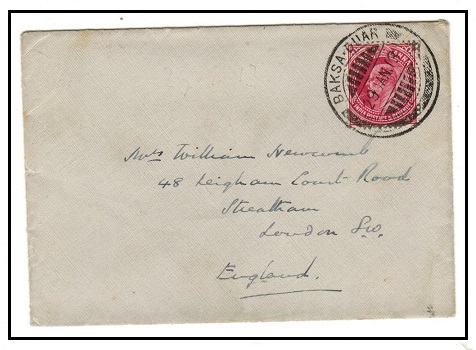 BAKSA-DUAR
29 JAN
Mrs William Newcomb
48 Leigham Court Road
Streatham
London S.W.
England.